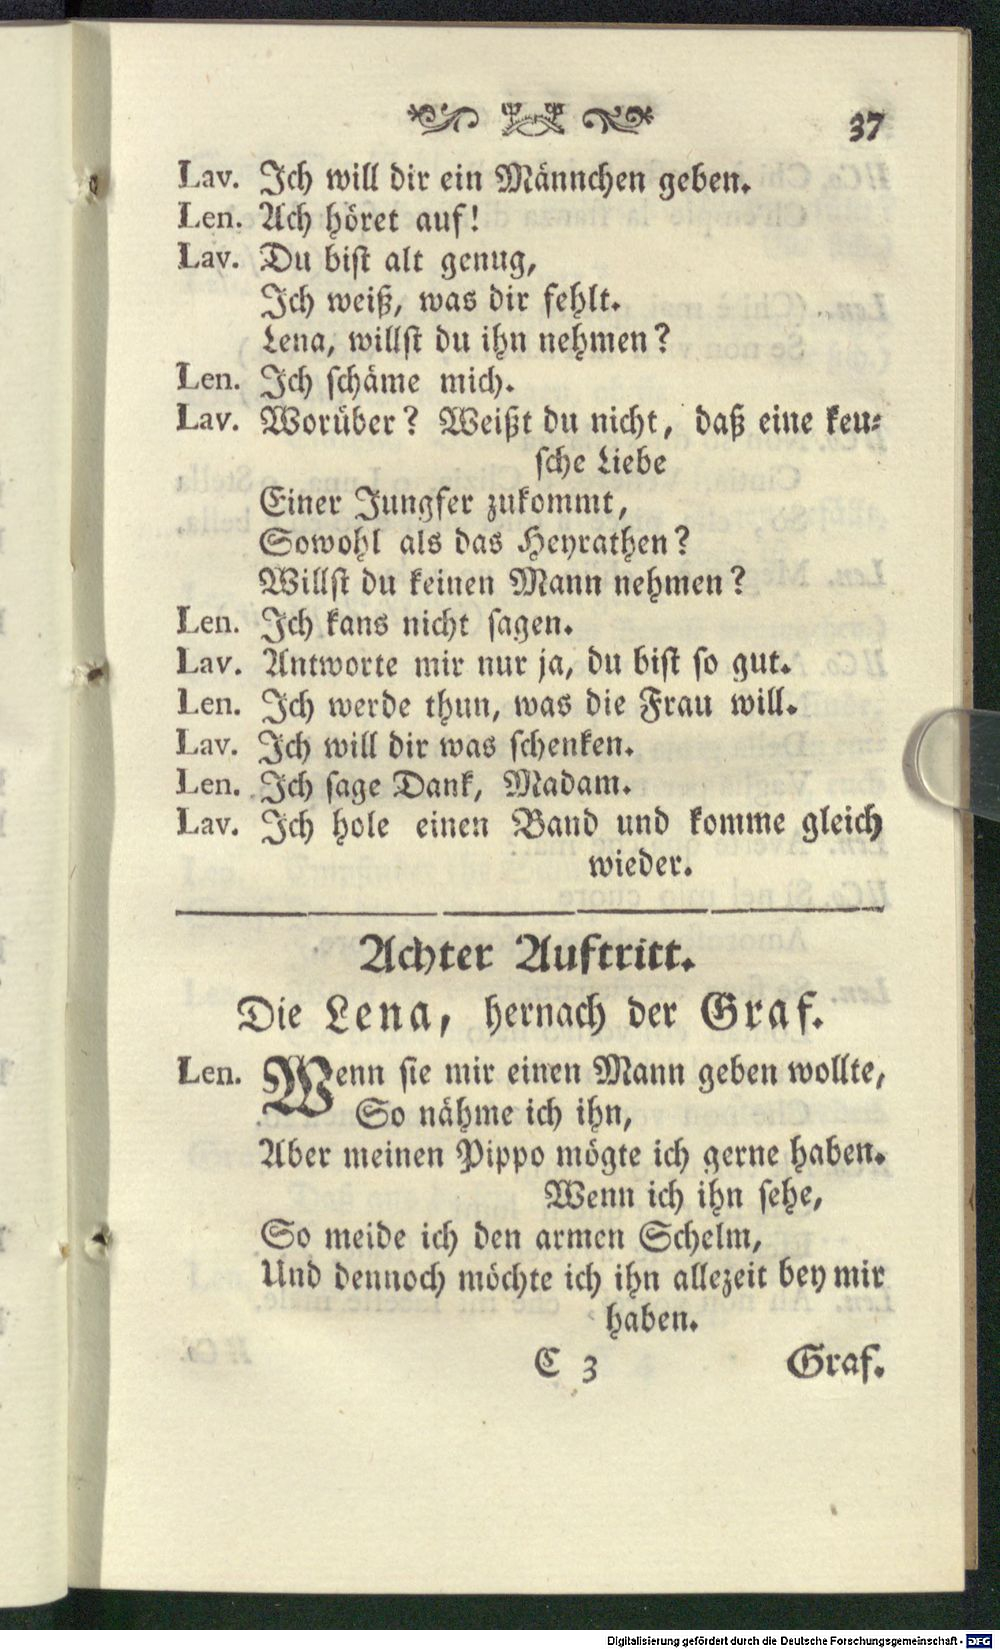 37
Lav. Ich will dir ein Männchen geben.
Len. Ach höret auf!
Lav. Du bist alt genug,
Ich weiß, was dir fehlt.
Lena, willst du ihn nehmen?
Len. Ich schäme mich.
Lav. Worüber? Weißt du nicht, daß eine keu-
sche Liebe
Einer Jungfer zukommt,
Sowohl als das Heyrathen?
Willst du keinen Mann nehmen?
Len. Ich kans nicht sagen.
Lav. Antworte mir nur ja, du bist so gut.
Len. Ich werde thun, was die Frau will.
Lav. Ich will dir was schenken.
Len. Ich sage Dank, Madam.
Lav. Ich hole einen Band und komme gleich
wieder.
Achter Auftritt.
Die Lena, hernach der Graf.
Len. Wenn sie mir einen Mann geben wollte,
So nähme ich ihn,
Aber meinen Pippo mögte ich gerne haben.
Wenn ich ihn sehe,
So meide ich den armen Schelm,
Und dennoch möchte ich ihn allezeit bey mir
haben.
C 3 Graf.
Digitalisierung gefördert durch die Deutsche Forschungsgemeinschaft - DFG